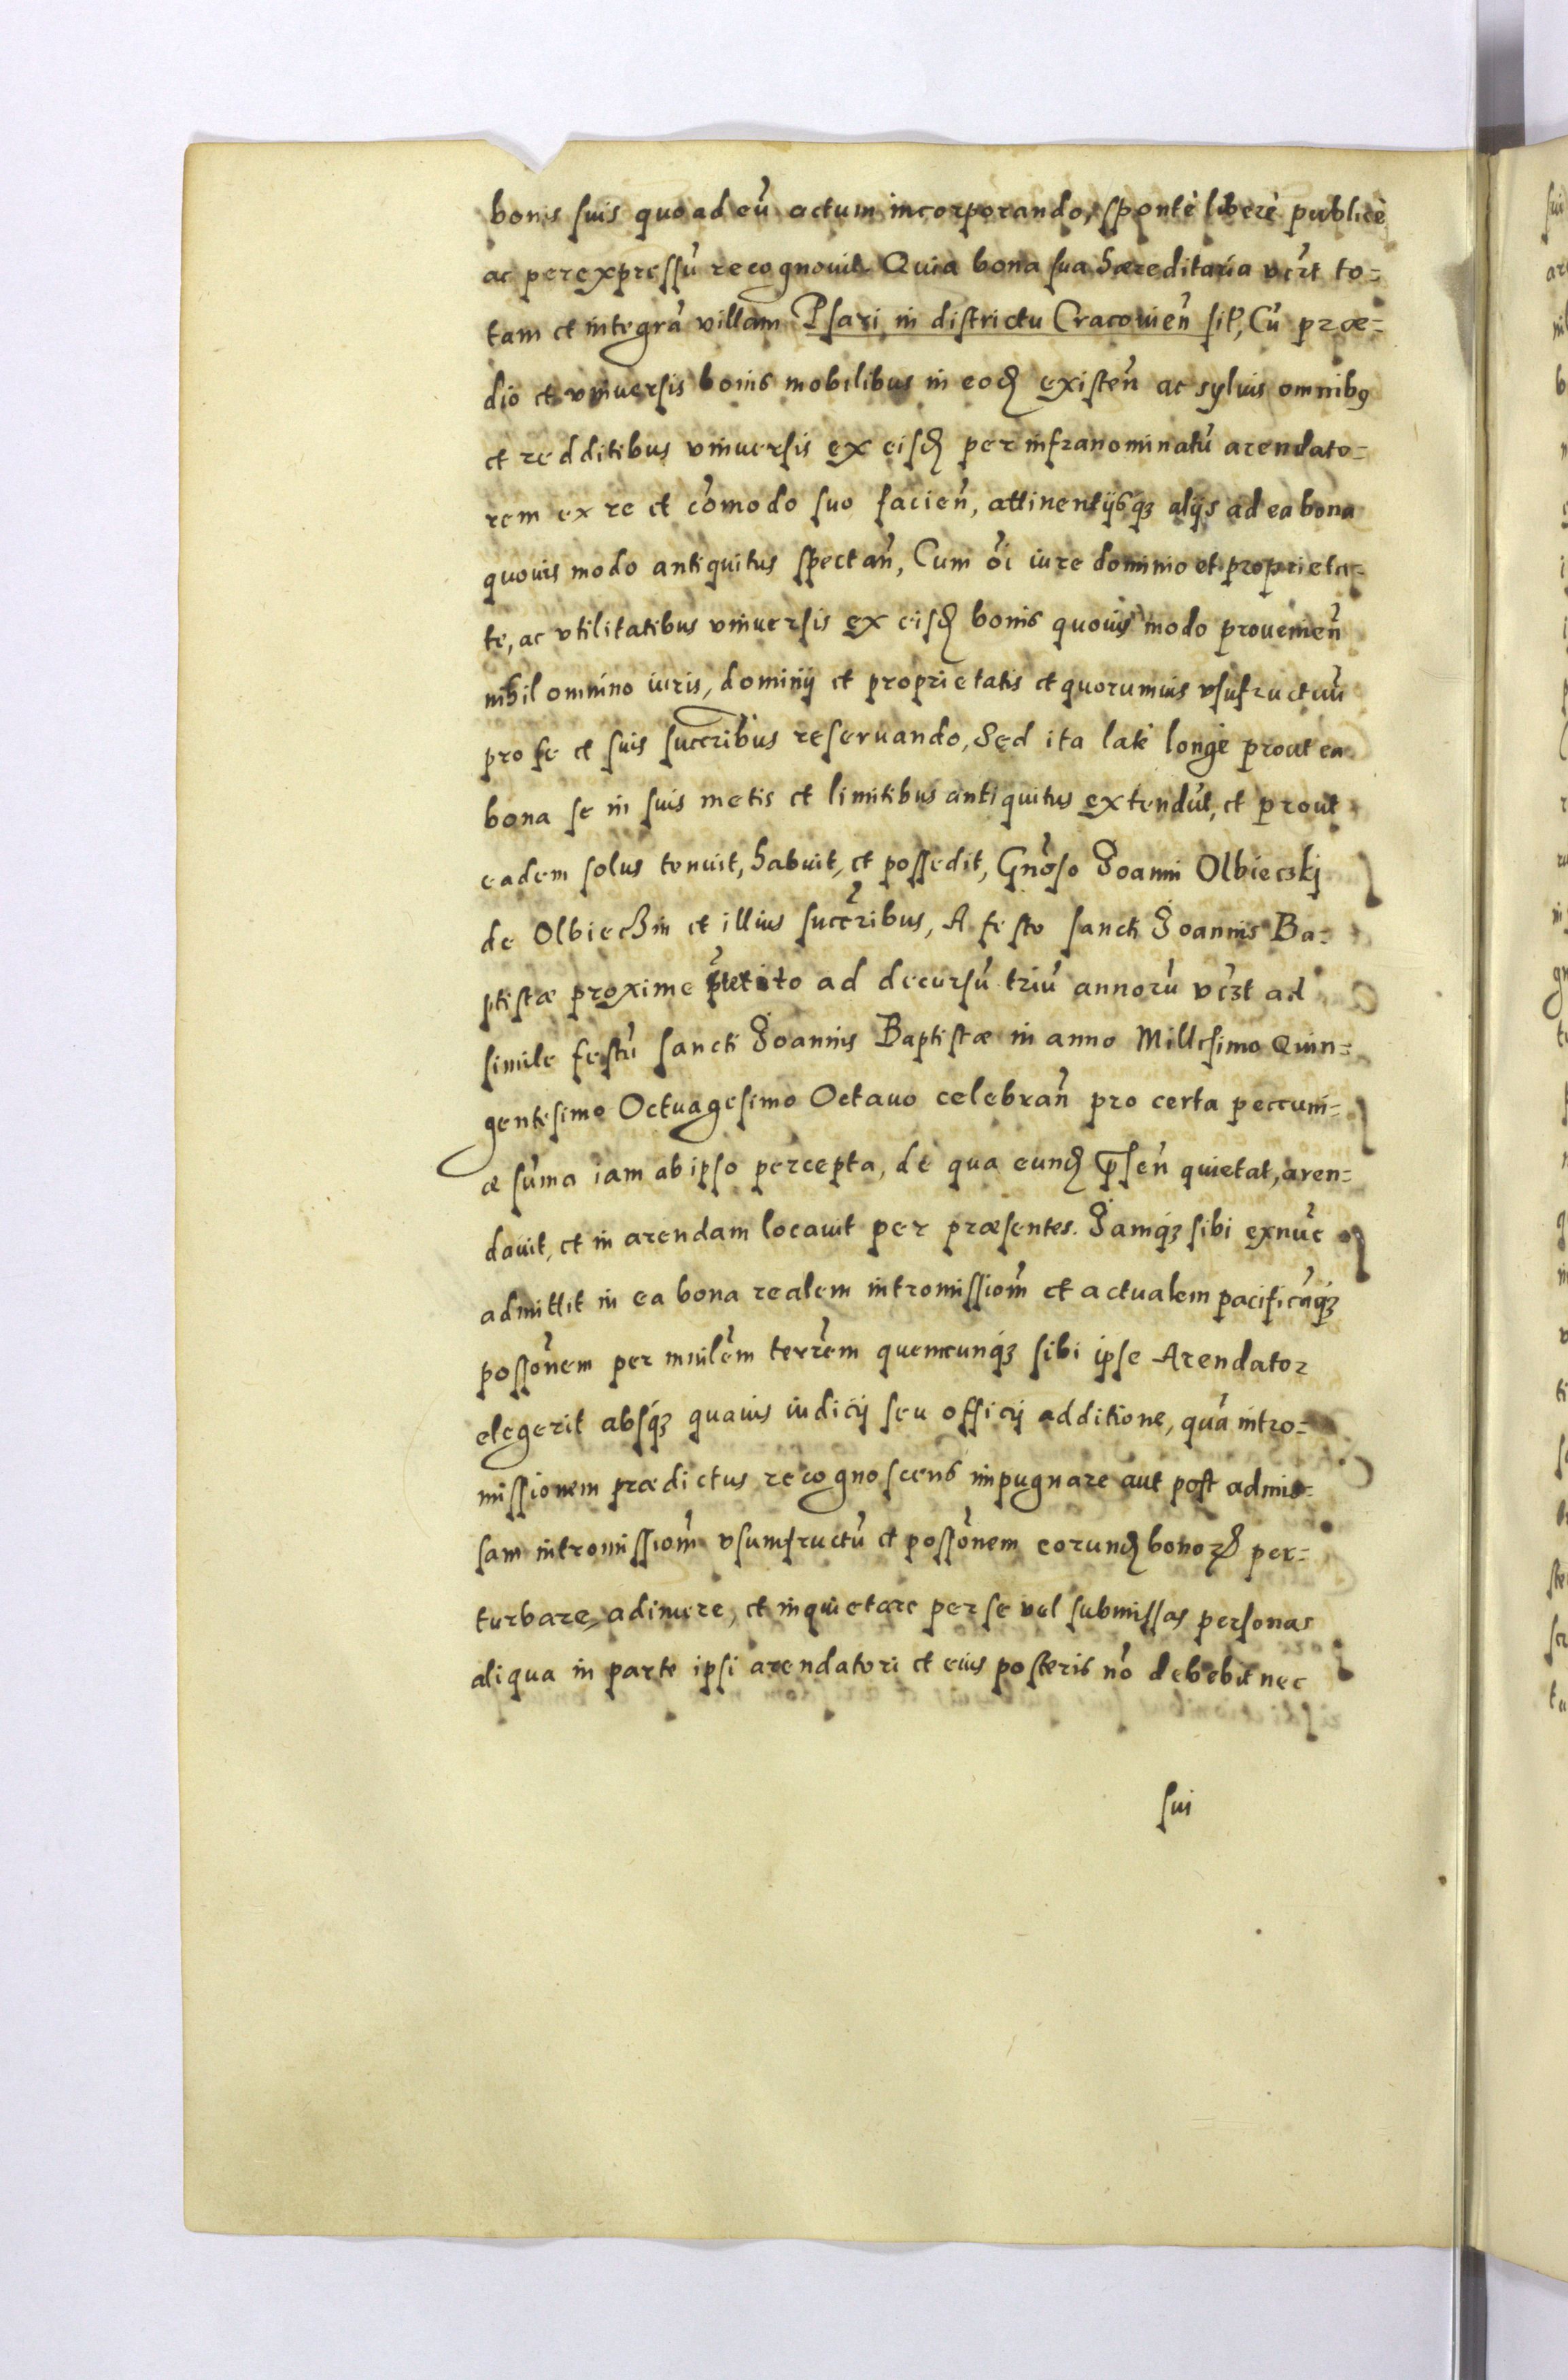 bonis suis quoad eū actum incorporando, spontè liberè publicè
ac per expressū recognouit Quia bona sua hæreditaria vczt to=
tam et integrā villam Psari in districtu Cracouieñ sit, Cū præ=
dio et vniuersis bonis mobilibus in eod existeñ ac syluis omnibꝰ
et redditibus vniuersis ex eisd per infranominatū arendato=
rem ex re et cōmodo suo facieñ, attinentijsqꝫ alijs ad ea bona
quouis modo antiquitus spectañ, Cum ōi iure dominio et proprieta=
te, ac vtilitatibus vniuersis ex eisd bonis quouis modo proueniēñ
nihil omnino iuris, dominij et proprietatis et quorumuis vsufructuū
pro se et suis succribus reseruando, Sed ita latè longè prout ea
bona se in suis metis et limitibus antiquitus extendūt, et prout
eadem solus tenuit, habuit, et possedit, Gnōso Joanni Olbieczkj
de Olbiechin et illius succribus, A festo sancti Joannis Ba=
ptistæ proxime p̄terito ad decursū triū annorū vczt ad
simile festū sancti Joannis Baptistæ in anno Millesimo Quin=
gentesimo Octuagesimo Octauo celebrañ pro certa peccuni=
æ sūma iam ab ipso percepta, de qua eund p̄señ quietat, aren=
dauit, et in arendam locauit per præsentes. Jamqꝫ sibi exnūc
admittit in ea bona realem intromissiom̄ et actualem pacificāqꝫ
possōnem per mnilēm terrēm quemcunqꝫ sibi ipse Arendator
elegerit absqꝫ quauis iudicij seu officij additione, quā intro=
missionem prædictus recognoscens impugnare aut post admis=
sam intromissiom̄ vsumfructū et possōnem eorund bonoꝝ per=
turbare, adimere, et inquietare per se vel submissas personas
aliqua in parte ipsi arendatori et eius posteris nō debebit nec
sui